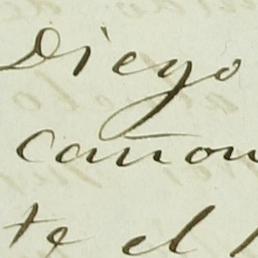 Diego
cañon
te el